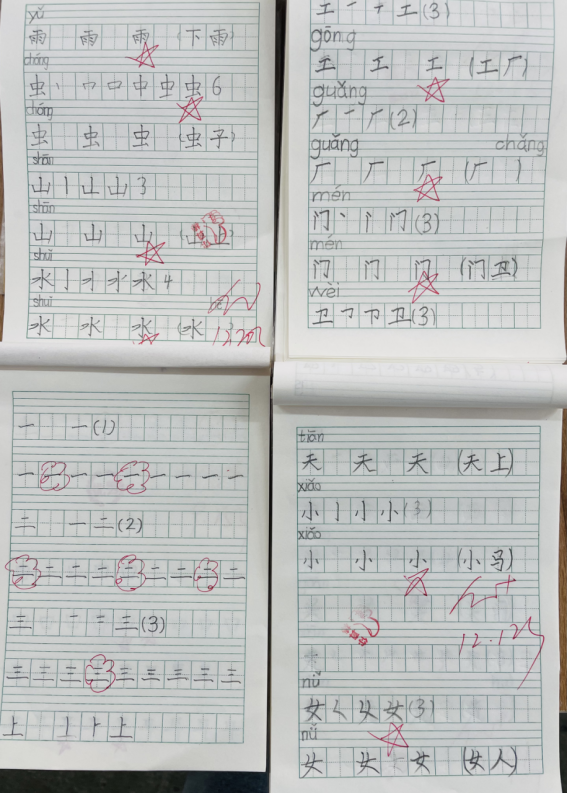 yǔ
雨 雨 雨 (下雨)
chóng
虫 丶 口 口 中 虫 虫 6
chóng
虫 虫 虫 (虫子)
shān
山 丨 山 山 3
shān
山 山 山
shuǐ
水 亅 水 4
shuǐ
水 水 水 (水
工 一 丅 工 (3)
gōng
工 工 工 (工厂)
guǎng
厂 一 厂 (2)
guǎng chǎng
厂 厂 厂 (厂 )
mén
门 丶 门 (3)
mén
门 门 门 (门卫)
wèi
卫 卫 (3)
一 一 (1)
一 一 一 一 一 一 一 一 一
二 一 二 (2)
二 二 二 二 二 二 二 二 二
三 一 二 三 (3)
三 三 三 三 三 三 三 三 三
上 丨 上
tiān
天 天 天 (天上)
xiǎo
小 亅 小 (3)
xiǎo
小 小 小 (小马)
12.12
nǚ
女 女 (3)
nǚ
女 女 女 (女人)